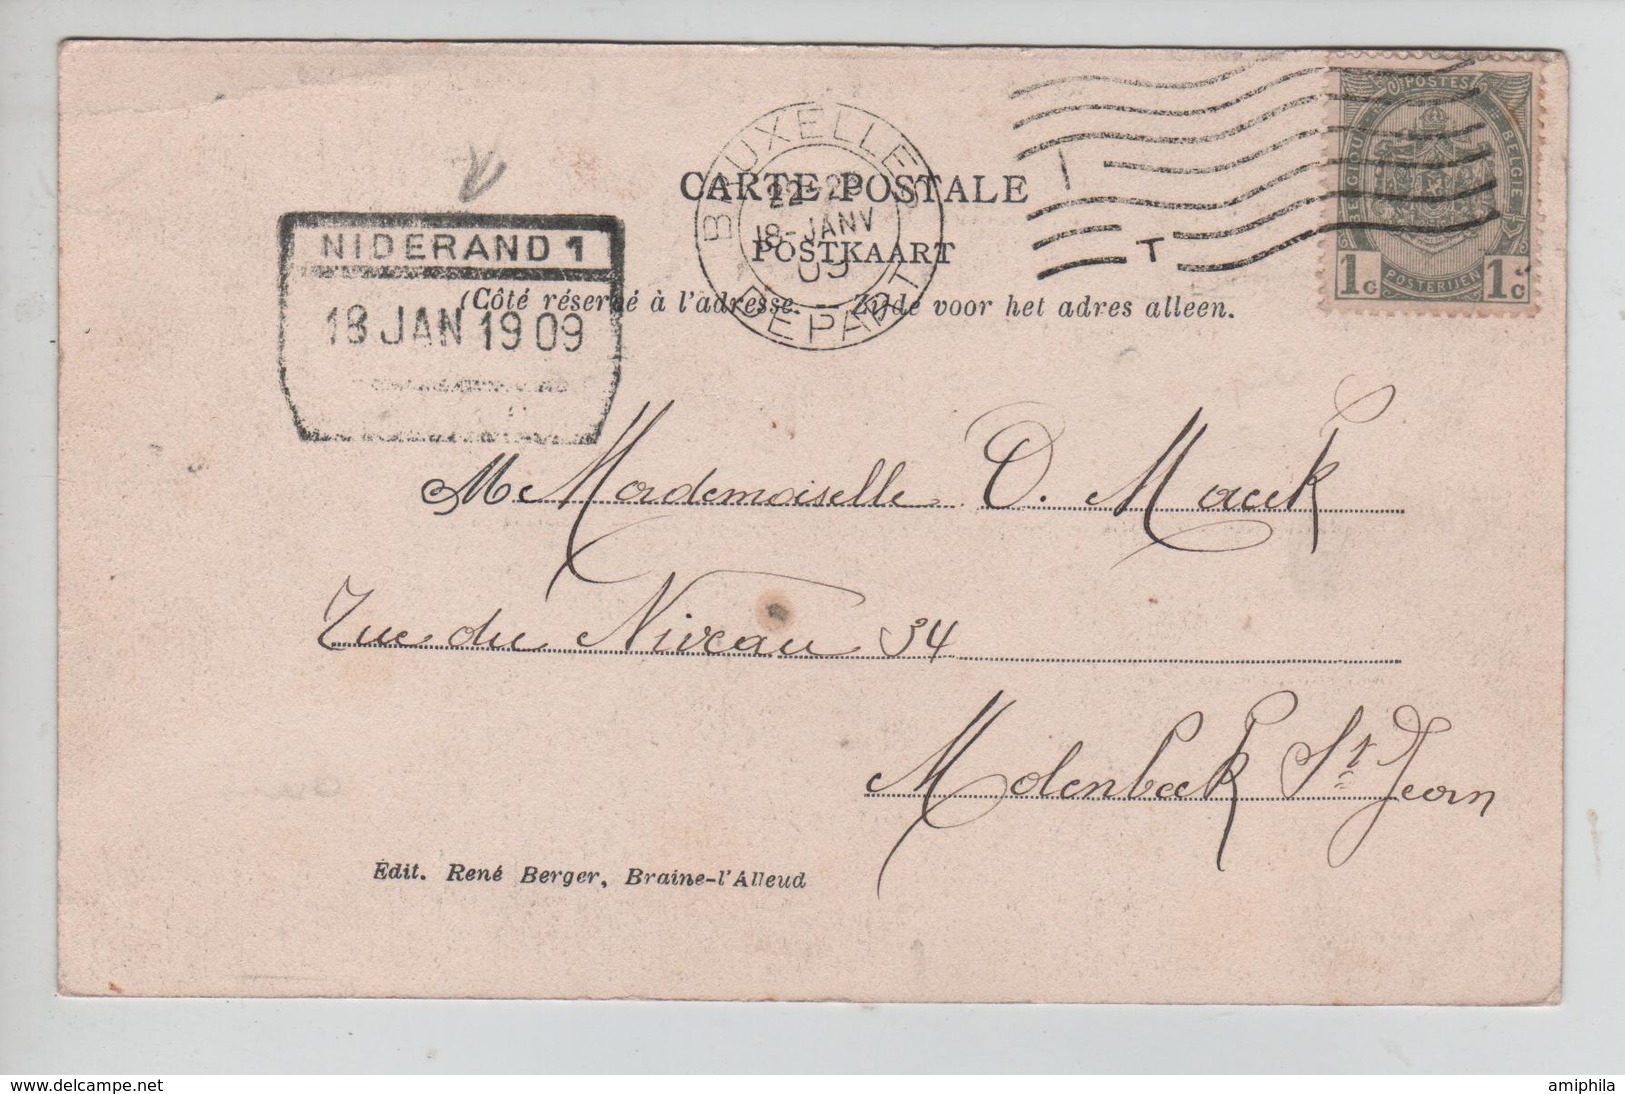 POSTES
BELGIQUE
BELGIË
POSTERIJEN
1c 1c
BRUXELLES
18-JANV
09
DEPART
T
CARTE POSTALE
POSTKAART
(Côté réservé à l'adresse. — Zijde voor het adres alleen.
NIDERAND 1
18 JAN 1909
Mademoiselle O. Maeck
Rue du Niveau 34
Molenbeek St Jean
Édit. René Berger, Braine-l'Alleud
www.delcampe.net
amiphila